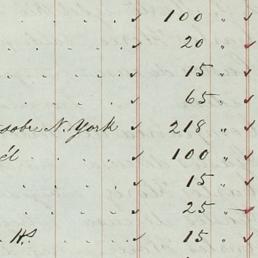 . . . . ✓ 100 „ ✓
. . . . ✓ 20 „ ✓
. . . . ✓ 15 „ ✓
. . . . ✓ 65 „ ✓
sobre N. York ✓ 218 „ ✓
él . . . ✓ 100 „ ✓
. . . . ✓ 15 „ ✓
. . . . ✓ 25 „ ✓
. . . ✓ 15 „ ✓